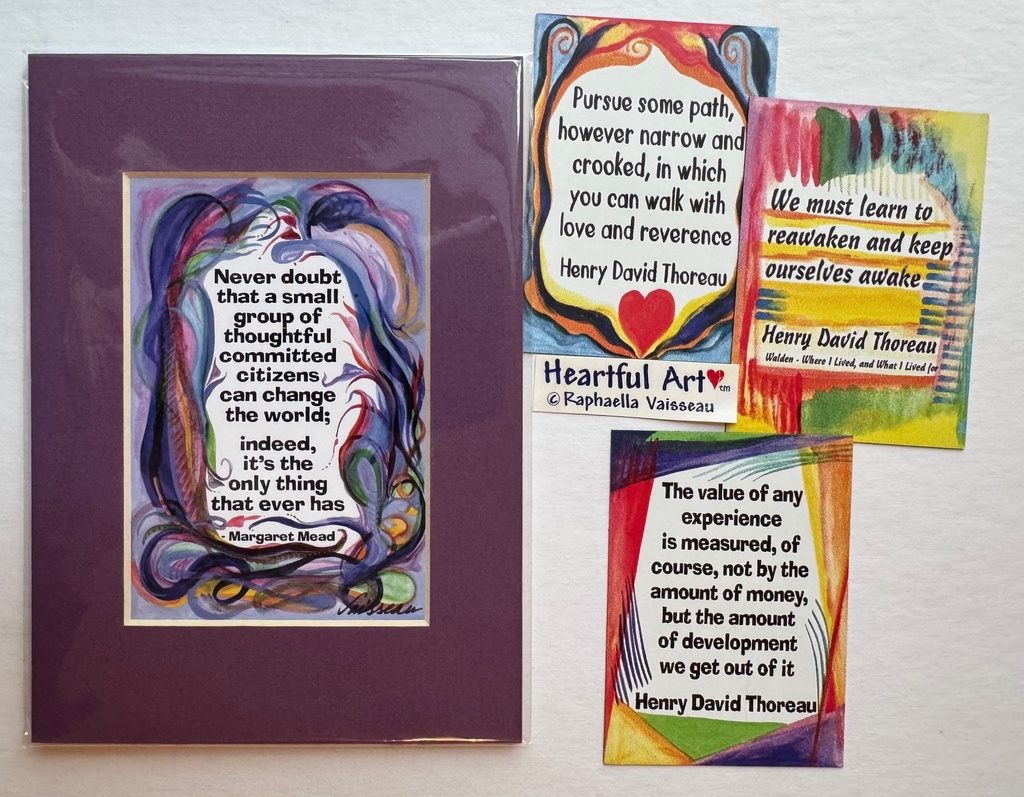 Never doubt
that a small
group of
thoughtful
committed
citizens
can change
the world;
indeed,
it's the
only thing
that ever has
- Margaret Mead
Vaisseau
Pursue some path,
however narrow and
crooked, in which
you can walk with
love and reverence
Henry David Thoreau
Heartful Art tm
© Raphaella Vaisseau
We must learn to
reawaken and keep
ourselves awake
Henry David Thoreau
Walden - Where I Lived, and What I Lived for
The value of any
experience
is measured, of
course, not by the
amount of money,
but the amount
of development
we get out of it
Henry David Thoreau